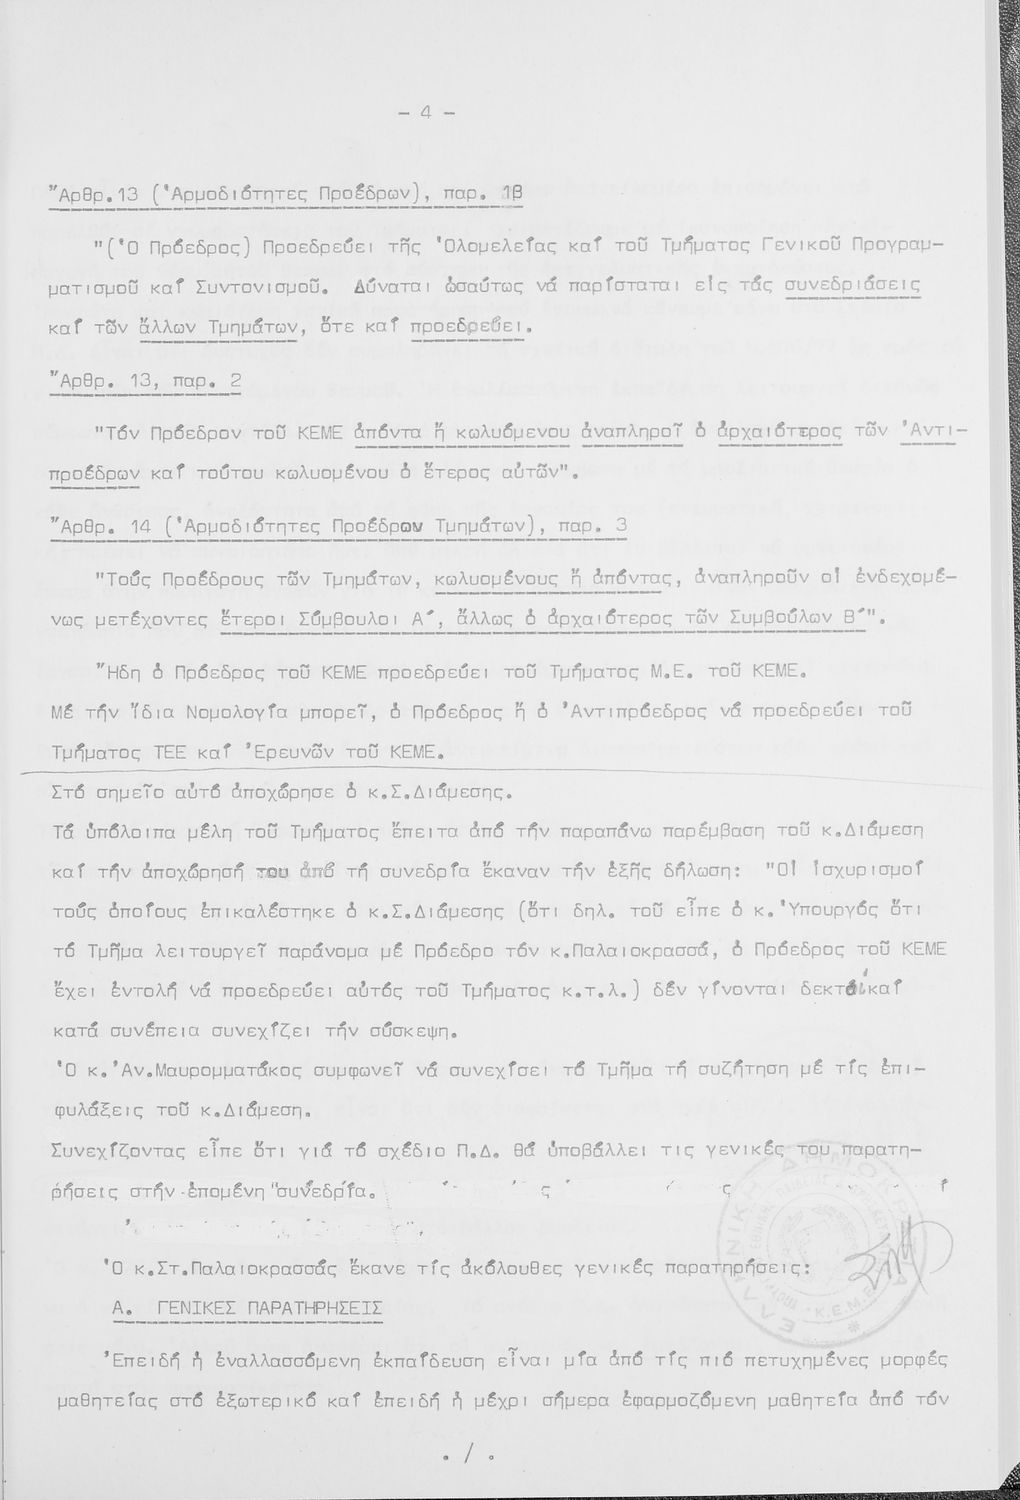 - 4 -
"Αρθρ.13 (Ἁρμοδιότητες Προέδρων), παρ. 1β
"(Ὁ Πρόεδρος) Προεδρεύει τῆς Ὁλομελείας καί τοῦ Τμήματος Γενικοῦ Προγραμ-
ματισμοῦ καί Συντονισμοῦ. Δύναται ὡσαύτως νά παρίσταται εἰς τάς συνεδριάσεις
καί τῶν ἄλλων Τμημάτων, ὅτε καί προεδρεύει.
Ἄρθρ. 13, παρ. 2
"Τόν Πρόεδρον τοῦ ΚΕΜΕ ἀπόντα ἤ κωλυόμενον ἀναπληροῖ ὁ ἀρχαιότερος τῶν Ἀντι-
προέδρων καί τούτου κωλυομένου ὁ ἕτερος αὐτῶν".
Ἄρθρ. 14 (Ἁρμοδιότητες Προέδρων Τμημάτων), παρ. 3
"Τούς Προέδρους τῶν Τμημάτων, κωλυομένους ἤ ἀπόντας, ἀναπληροῦν οἱ ἐνδεχομέ-
νως μετέχοντες ἕτεροι Σύμβουλοι Α΄, ἄλλως ὁ ἀρχαιότερος τῶν Συμβούλων Β΄".
Ἤδη ὁ Πρόεδρος τοῦ ΚΕΜΕ προεδρεύει τοῦ Τμήματος Μ.Ε. τοῦ ΚΕΜΕ.
Μέ τήν ἴδια Νομολογία μπορεῖ, ὁ Πρόεδρος ἤ ὁ Ἀντιπρόεδρος νά προεδρεύει τοῦ
Τμήματος ΤΕΕ καί Ἐρευνῶν τοῦ ΚΕΜΕ.
Στό σημεῖο αὐτό ἀποχώρησε ὁ κ.Σ.Διάμεσης.
Τά ὑπόλοιπα μέλη τοῦ Τμήματος ἔπειτα ἀπό τήν παραπάνω παρέμβαση τοῦ κ.Διάμεση
καί τήν ἀποχώρησή του ἀπό τή συνεδρία ἔκαναν τήν ἑξῆς δήλωση: "Οἱ ἰσχυρισμοί
τούς ὁποίους ἐπικαλέστηκε ὁ κ.Σ.Διάμεσης (ὅτι δηλ. τοῦ εἶπε ὁ κ.Ὑπουργός ὅτι
τό Τμῆμα λειτουργεῖ παράνομα μέ Πρόεδρο τόν κ.Παλαιοκρασσά, ὁ Πρόεδρος τοῦ ΚΕΜΕ
ἔχει ἐντολή νά προεδρεύει αὐτός τοῦ Τμήματος κ.τ.λ.) δέν γίνονται δεκτοί καί
κατά συνέπεια συνεχίζει τήν σύσκεψη.
Ὁ κ.Ἀν.Μαυρομματάκος συμφωνεῖ νά συνεχίσει τό Τμῆμα τή συζήτηση μέ τίς ἐπι-
φυλάξεις τοῦ κ.Διάμεση.
Συνεχίζοντας εἶπε ὅτι γιά τό σχέδιο Π.Δ. θά ὑποβάλλει τις γενικές του παρατη-
ρήσεις στήν ἑπομένη συνεδρία.
Ὁ κ.Στ.Παλαιοκρασσάς ἔκανε τίς ἀκόλουθες γενικές παρατηρήσεις:
Α. ΓΕΝΙΚΕΣ ΠΑΡΑΤΗΡΗΣΕΙΣ
Ἐπειδή ἡ ἐναλλασσόμενη ἐκπαίδευση εἶναι μία ἀπό τίς πιό πετυχημένες μορφές
μαθητείας στό ἐξωτερικό καί ἐπειδή ἡ μέχρι σήμερα ἐφαρμοζόμενη μαθητεία ἀπό τόν
. / .